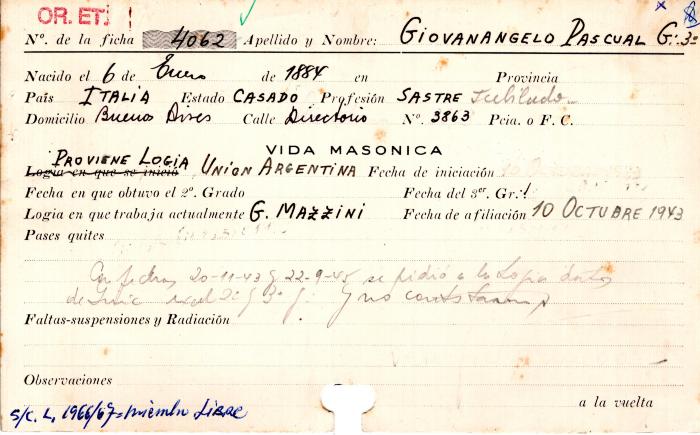 OR. ET.
Nº. de la ficha 4062 Apellido y Nombre: GIOVANANGELO PASCUAL G. 3º
Nacido el 6 de Enero de 1884 en Provincia
País ITALIA Estado CASADO Profesión SASTRE Jubilado
Domicilio Buenos Aires Calle Directorio Nº. 3863 Pcia. o F. C.
VIDA MASONICA
PROVIENE LOGIA
Logia en que se inició UNION ARGENTINA Fecha de iniciación
Fecha en que obtuvo el 2º. Grado Fecha del 3er. Gr.
Logia en que trabaja actualmente G. MAZZINI Fecha de afiliación 10 OCTUBRE 1943
Pases quites
En fechas 20-11-43 y 22-9-45 se pidió a la Logia datos
de Inic 2º y 3º y no contestaron
Faltas-suspensiones y Radiación
Observaciones
a la vuelta
S/C. L. 1966/67 = miembro LIBRE